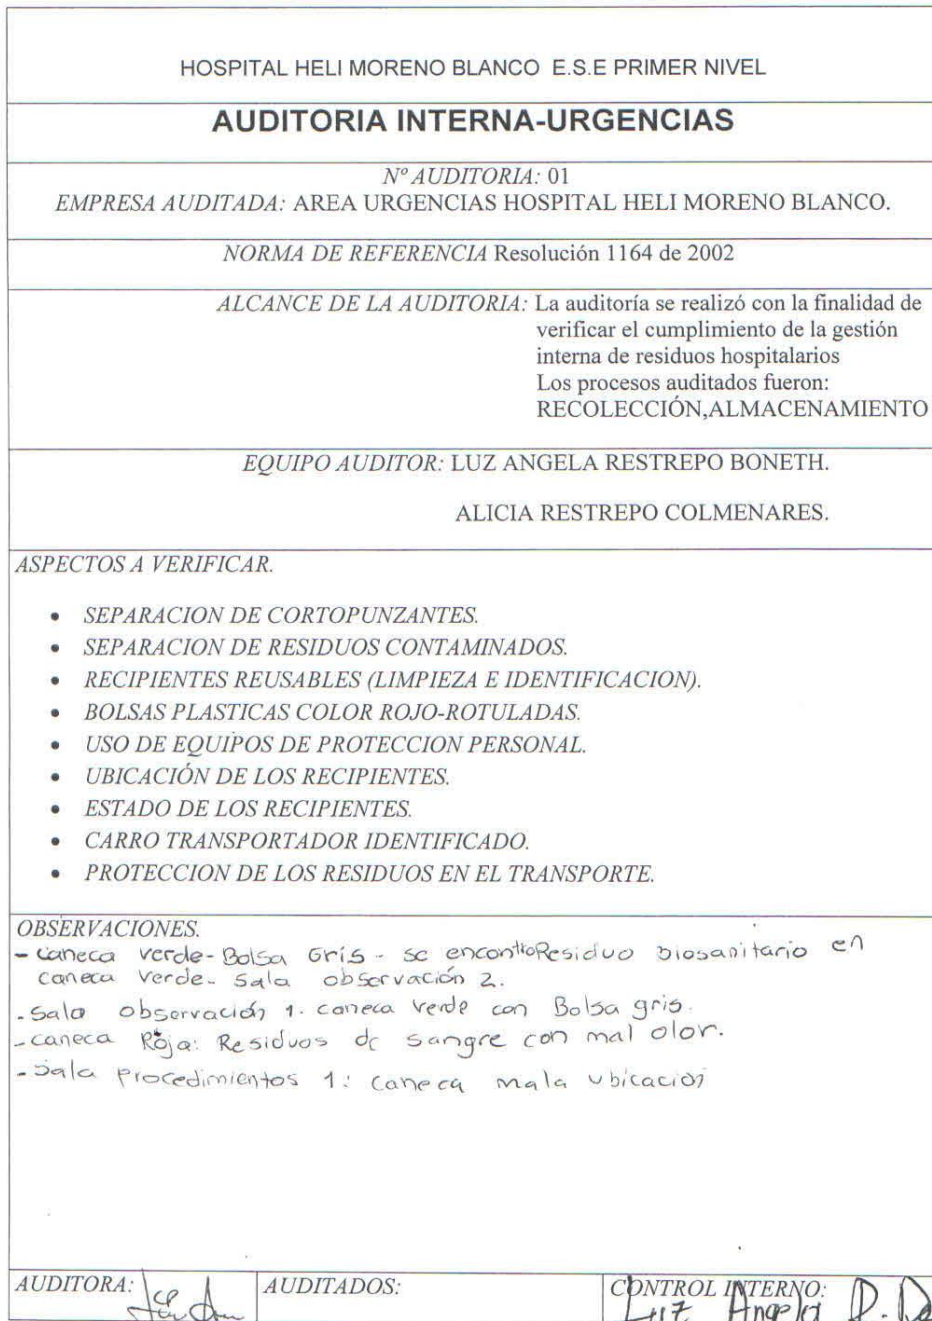 HOSPITAL HELI MORENO BLANCO E.S.E PRIMER NIVEL
AUDITORIA INTERNA-URGENCIAS
Nº AUDITORIA: 01
EMPRESA AUDITADA: AREA URGENCIAS HOSPITAL HELI MORENO BLANCO.
NORMA DE REFERENCIA Resolución 1164 de 2002
ALCANCE DE LA AUDITORIA: La auditoría se realizó con la finalidad de
verificar el cumplimiento de la gestión
interna de residuos hospitalarios
Los procesos auditados fueron:
RECOLECCIÓN,ALMACENAMIENTO
EQUIPO AUDITOR: LUZ ANGELA RESTREPO BONETH.
ALICIA RESTREPO COLMENARES.
ASPECTOS A VERIFICAR.
• SEPARACION DE CORTOPUNZANTES.
• SEPARACION DE RESIDUOS CONTAMINADOS.
• RECIPIENTES REUSABLES (LIMPIEZA E IDENTIFICACION).
• BOLSAS PLASTICAS COLOR ROJO-ROTULADAS.
• USO DE EQUIPOS DE PROTECCION PERSONAL.
• UBICACIÓN DE LOS RECIPIENTES.
• ESTADO DE LOS RECIPIENTES.
• CARRO TRANSPORTADOR IDENTIFICADO.
• PROTECCION DE LOS RESIDUOS EN EL TRANSPORTE.
OBSERVACIONES.
- caneca verde- Bolsa Gris - se encontro Residuo biosanitario en
caneca verde- Sala observación 2.
- Sala observación 1. caneca verde con Bolsa gris.
- caneca Roja: Residuos de sangre con mal olor.
- Sala Procedimientos 1: caneca mala ubicación
AUDITORA: AUDITADOS: CONTROL INTERNO:
Luz Angela R.